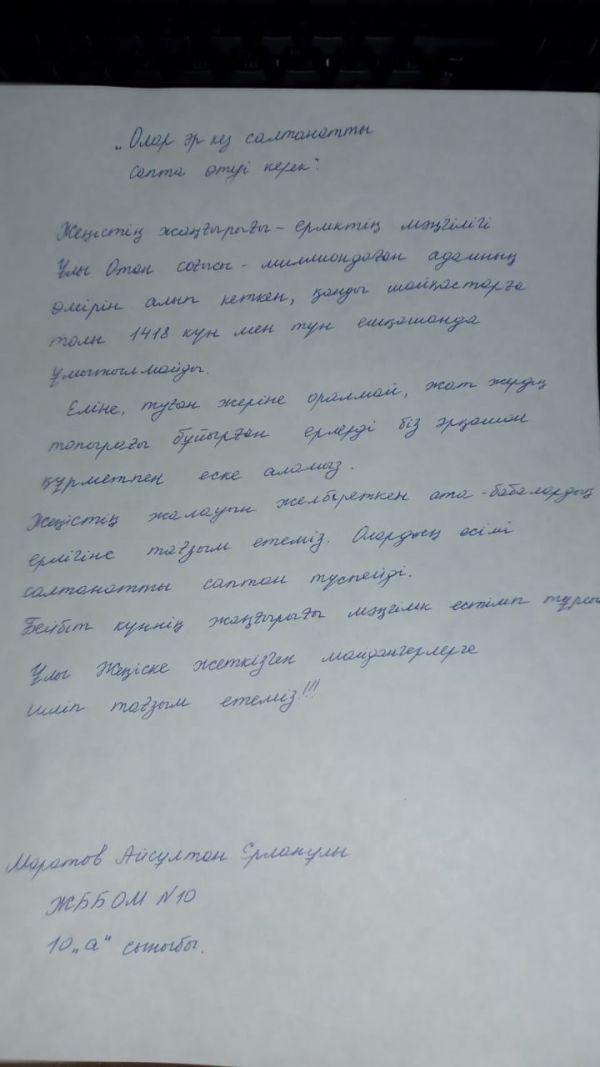 „Олар әр кез салтанатты
сапта өтуі керек".
Жеңістің жаңғырығы - ерліктің мәңгілігі
Ұлы Отан соғысы - миллиондаған адамның
өмірін алып кеткен, қанды шайқастарға
толы 1418 күн мен түн ешқашанда
ұмытылмайды.
Еліне, туған жеріне оралмай, жат жердің
топырағы бұйырған ерлерді біз әрқашан
құрметпен еске аламыз.
Жеңістің жалауын желбіреткен ата-бабалардың
ерлігіне тағзым етеміз. Олардың есімі
салтанатты саптан түспейді.
Бейбіт күннің жаңғырығы мәңгілік естіліп тұрсы
Ұлы Жеңіске жеткізген майдангерлерге
иіліп тағзым етеміз!!!
Маратов Айсұлтан Ерланұлы
ЖББОМ N10
10 „а" сыныбы.